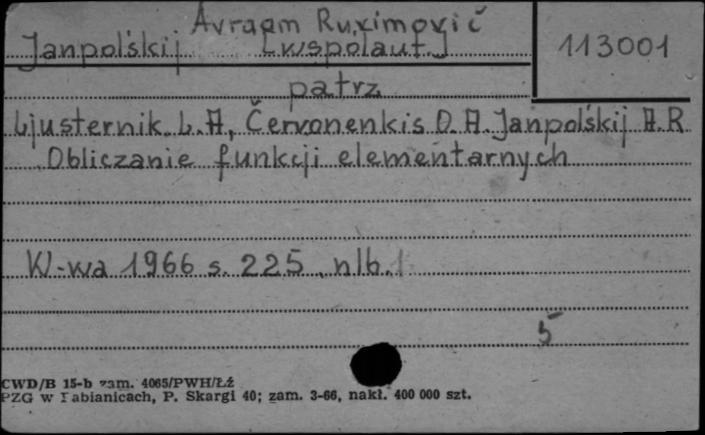 Avraam Ruvimovič
Janpolśkij [wspolaut.]
113001
patrz
Ljusternik L.A, Červonenkis O.A. Janpolśkij A.R
Obliczanie funkcji elementarnych
W-wa 1966 s. 225, nlb. 1
5
CWD/B 15-b zam. 4065/PWH/Łż
PZG w Pabianicach, P. Skargi 40; zam. 3-66, nakł. 400 000 szt.